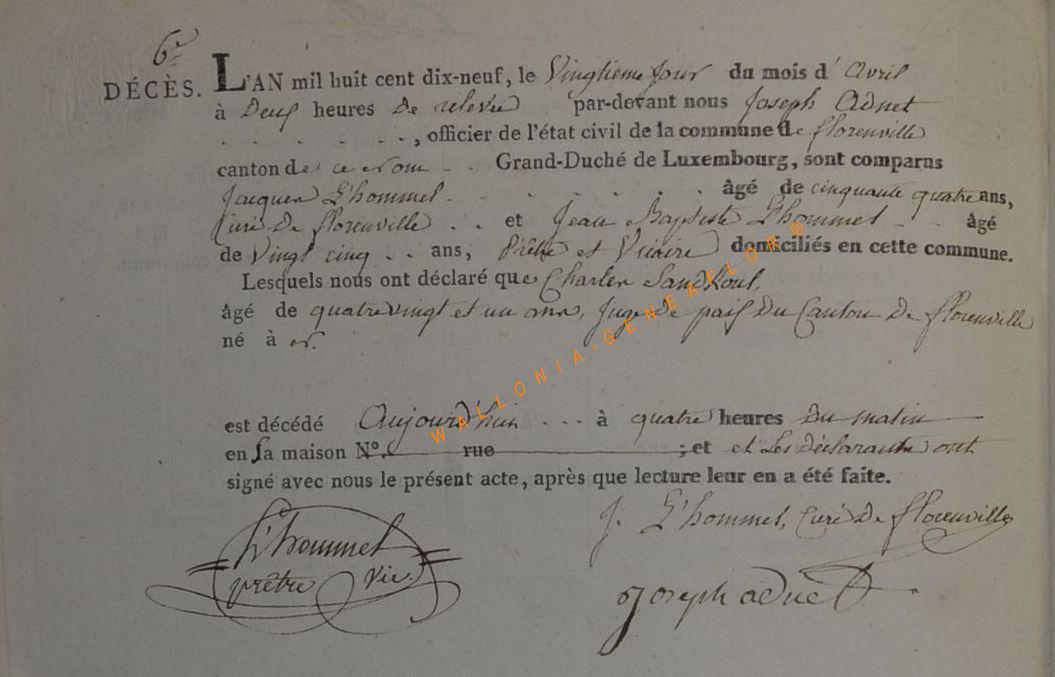 6e
DÉCÈS. L'AN mil huit cent dix-neuf, le Vingtieme jour du mois d' avril
à Deux heures De relevée par-devant nous Joseph Adnet
. . . . . . , officier de l'état civil de la commune de florenville
canton de ce nom . . Grand-Duché de Luxembourg, sont comparus
Jacques L'hommel . . . . . . âgé de cinquante quatre ans,
Curé De florenville . . et Jean Baptiste L'hommel . . âgé
de Vingt cinq . . ans, Prêtre et Vicaire domiciliés en cette commune.
Lesquels nous ont déclaré que Charles
âgé de quatrevingt et un ans, Juge De paix Du Canton De florenville
né à
est décédé Aujourd'hui . . . à quatre heures Du matin
en sa maison N°. rue ; et et Les déclarants ont
signé avec nous le présent acte, après que lecture leur en a été faite.
L'hommel
prêtre vic.
J. L'hommel, Curé De florenville
Joseph adnet
WALLONIA-GENEAFLOR®